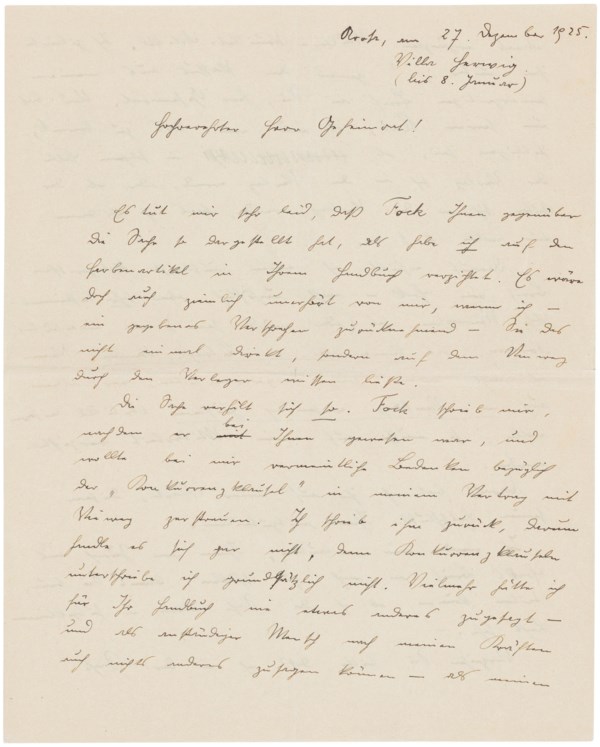 Arosa, am 27. Dezember 1925.
Villa Herwig
(bis 8. Januar)
Hochverehrter Herr Geheimrat!
Es tut mir sehr leid, daß Fock Ihnen gegenüber
die Sache so dargestellt hat, als habe ich auf den
Farbenartikel in Ihrem Handbuch verzichtet. Es wäre
doch auch ziemlich unerhört von mir, wenn ich –
ein gegebenes Versprechen zurücknehmend – Sie das
nicht einmal direkt, sondern auf dem Umweg
durch den Verleger wissen ließe.
Die Sache verhält sich so. Fock schrieb mir,
nachdem er bei Ihnen gewesen war, und
wollte bei mir vermeintliche Bedenken bezüglich
der „Konkurrenzklausel" in meinem Vertrag mit
Vieweg zerstreuen. Ich schrieb ihm zurück, darum
handle es sich gar nicht, denn Konkurrenzklauseln
unterschreibe ich grundsätzlich nicht. Vielmehr hätte ich
für Ihr Handbuch nie etwas anderes zugesagt –
und als anständiger Mensch nach meinen Kräften
auch nichts anderes zusagen können – als meinen